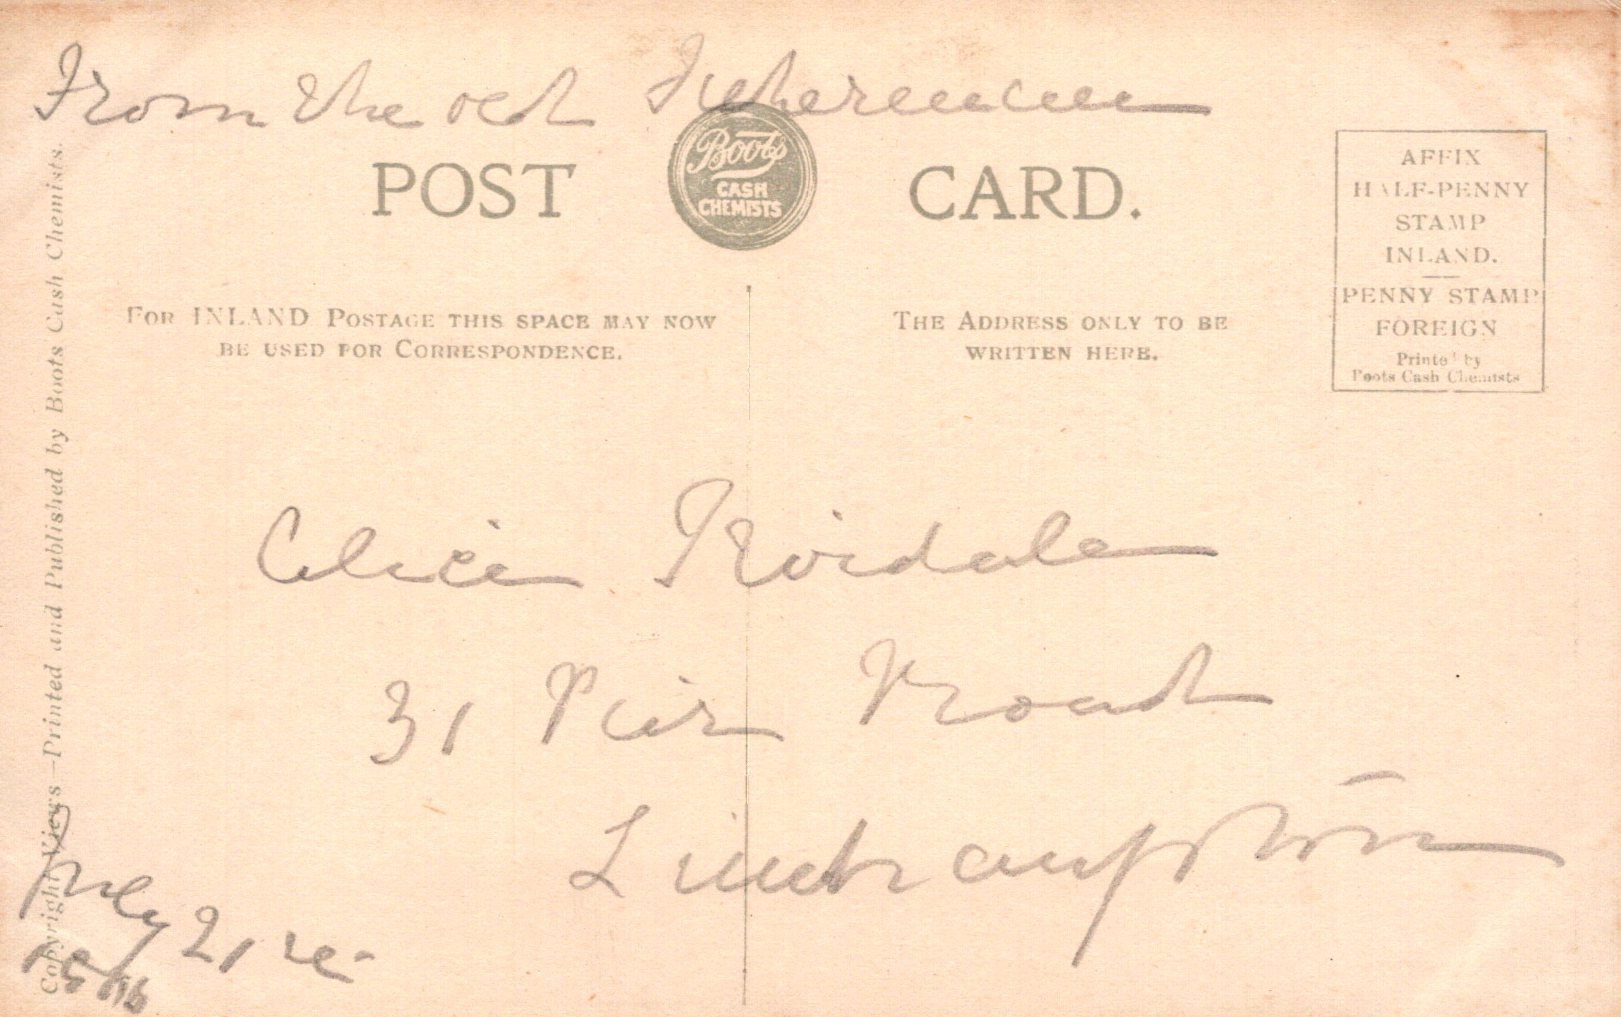 From the old Fisherman
Boots
CASH
CHEMISTS
POST CARD.
FOR INLAND POSTAGE THIS SPACE MAY NOW
BE USED FOR CORRESPONDENCE.
THE ADDRESS ONLY TO BE
WRITTEN HERE.
AFFIX
HALF-PENNY
STAMP
INLAND.
PENNY STAMP
FOREIGN
Printed by
Boots Cash Chemists
Copyright Views—Printed and Published by Boots Cash Chemists.
Alice
31 Pier Road
Littlehampton
July 21